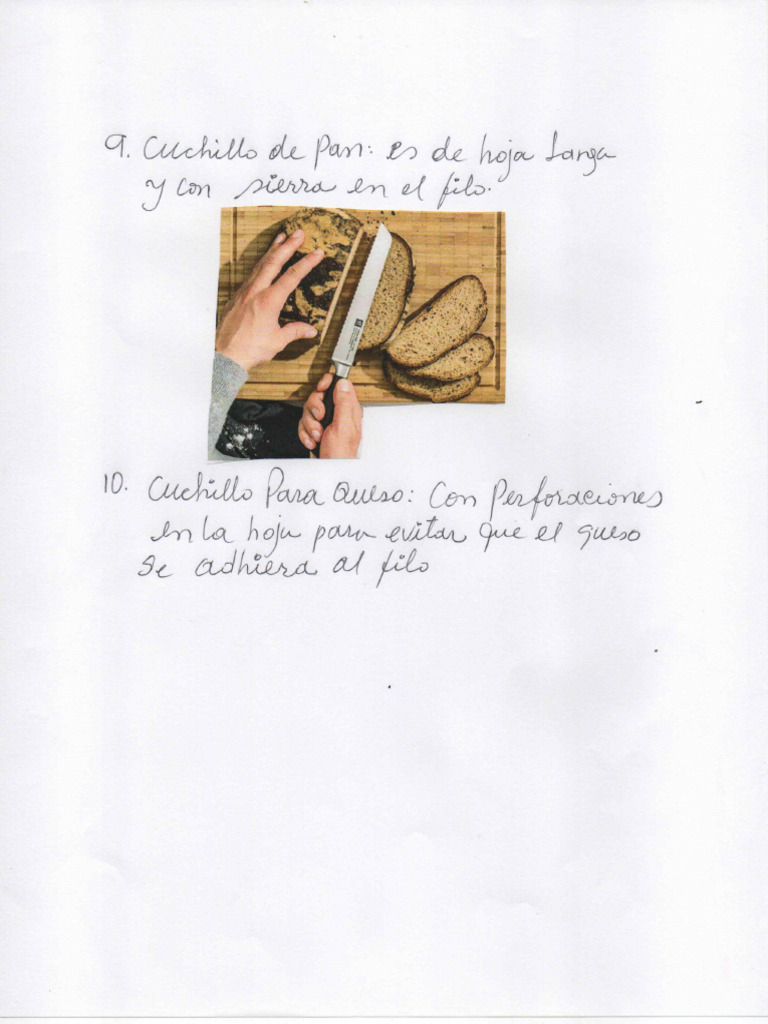 9. Cuchillo de Pan: es de hoja Larga
y con sierra en el filo.
10. Cuchillo Para Queso: Con Perforaciones
en La hoja para evitar que el queso
Se adhiera al filo